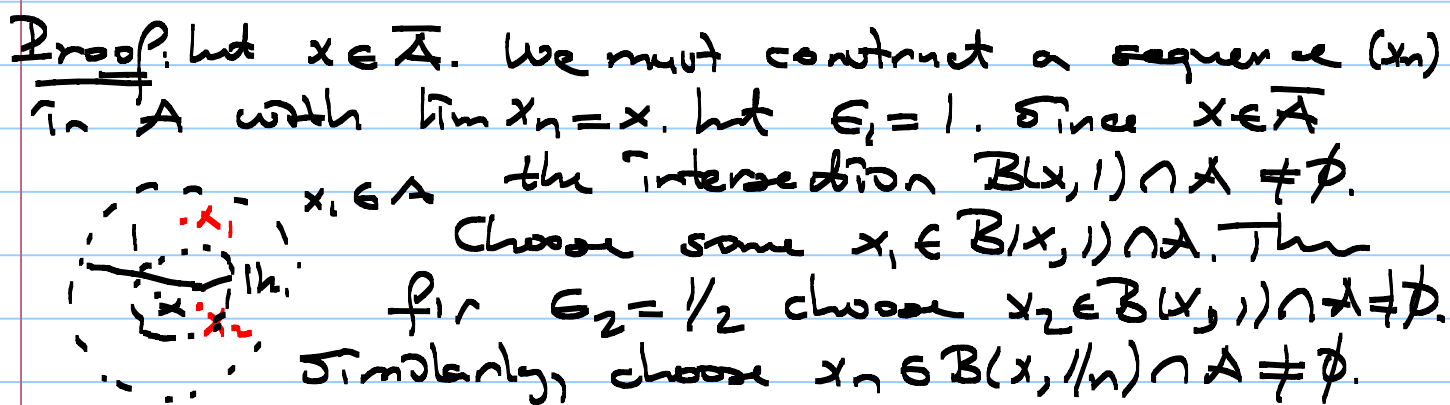 Proof: Let x ∈ A̅. We must construct a sequence (xₙ)
in A with lim xₙ = x. Let ε₁ = 1. Since x ∈ A̅
the intersection B(x, 1) ∩ A ≠ ∅.
x₁ ∈ A
x₁
Choose some x₁ ∈ B(x, 1) ∩ A. Then
for ε₂ = 1/2 choose x₂ ∈ B(x, 1) ∩ A ≠ ∅.
x
x₂
Similarly, choose xₙ ∈ B(x, 1/n) ∩ A ≠ ∅.